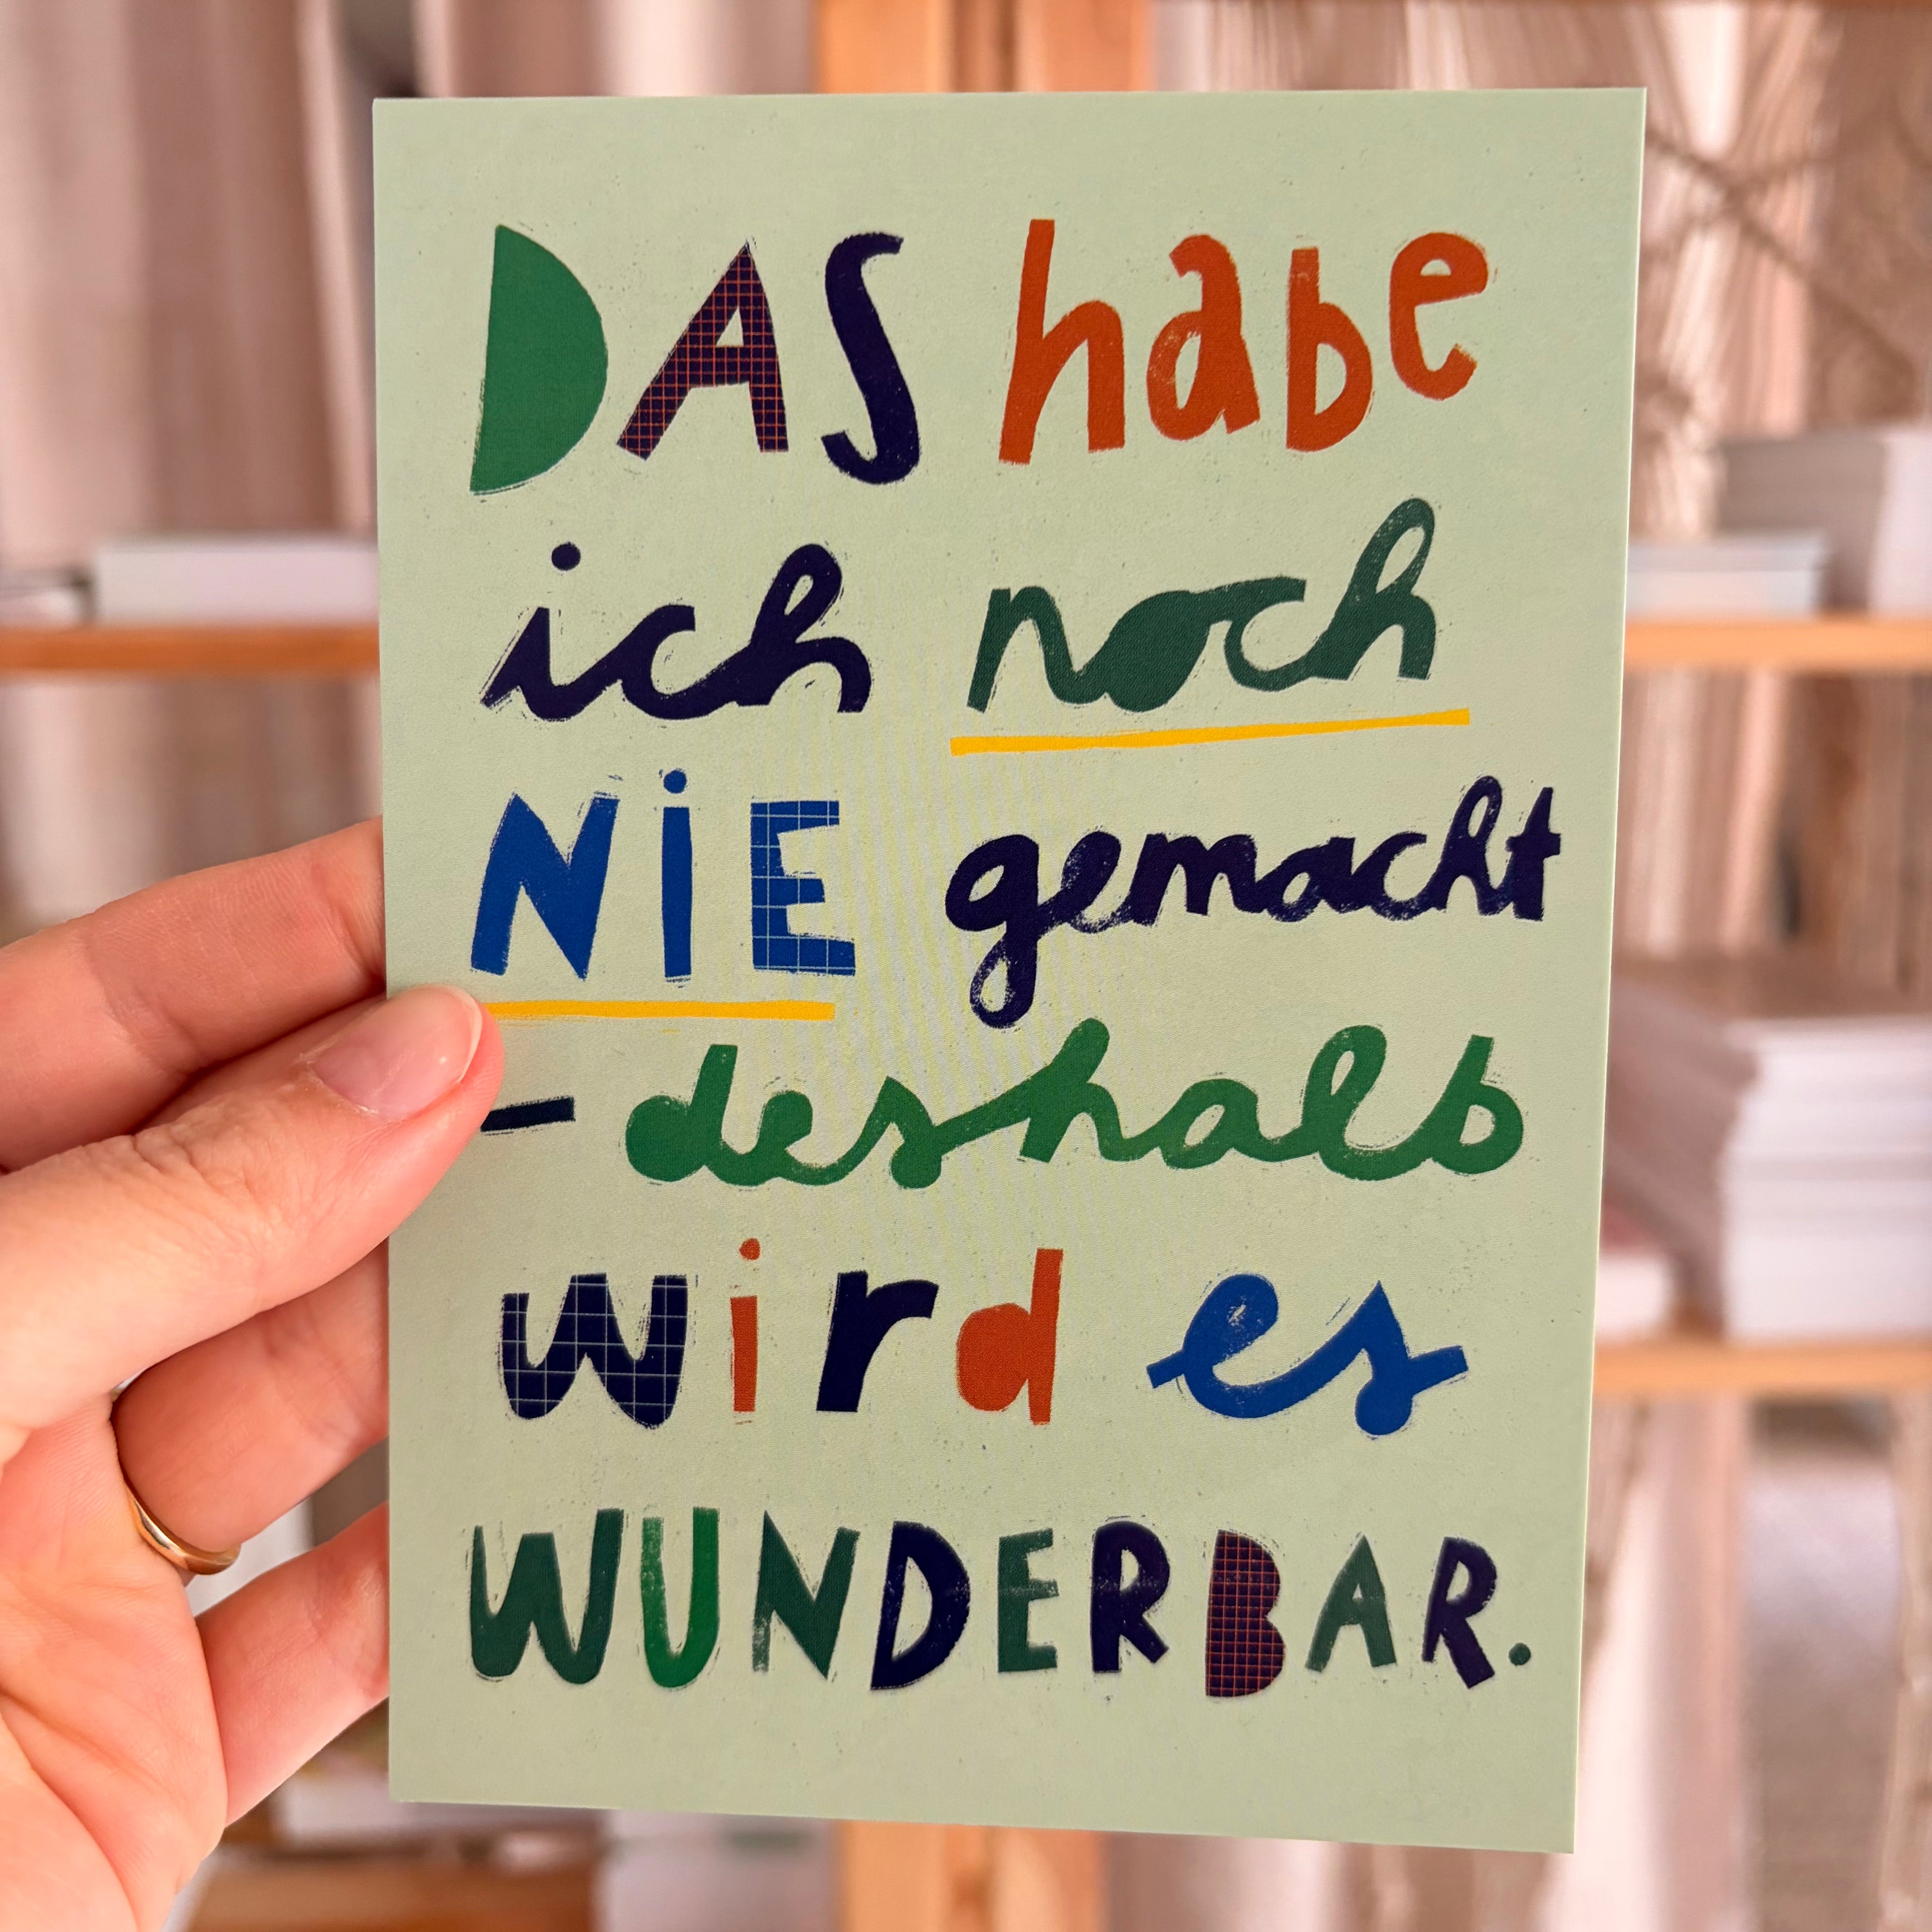 DAS habe
ich noch
NiE gemacht
– deshalb
wird es
WUNDERBAR.